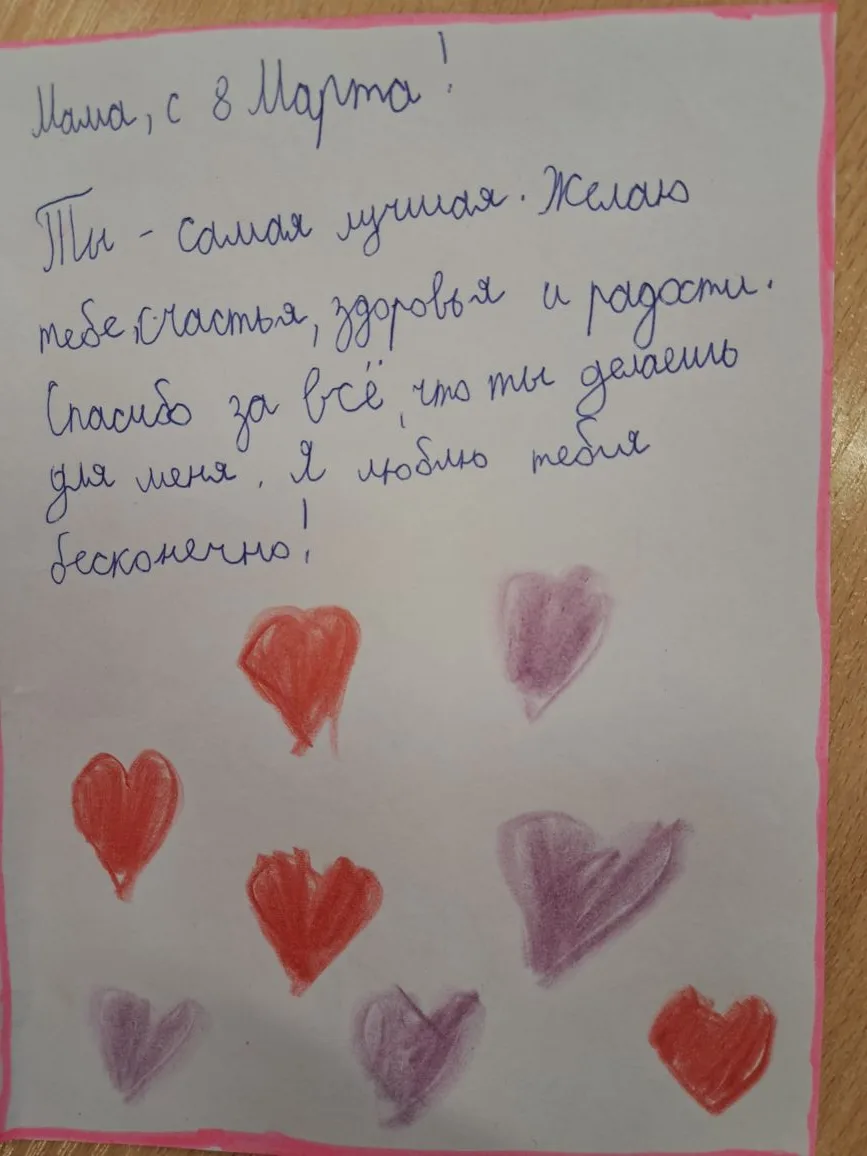 Мама, с 8 Марта!
Ты - самая лучшая. Желаю
тебе, счастья, здоровья и радости.
Спасибо за всё, что ты делаешь
для меня. Я люблю тебия
бесконечно!